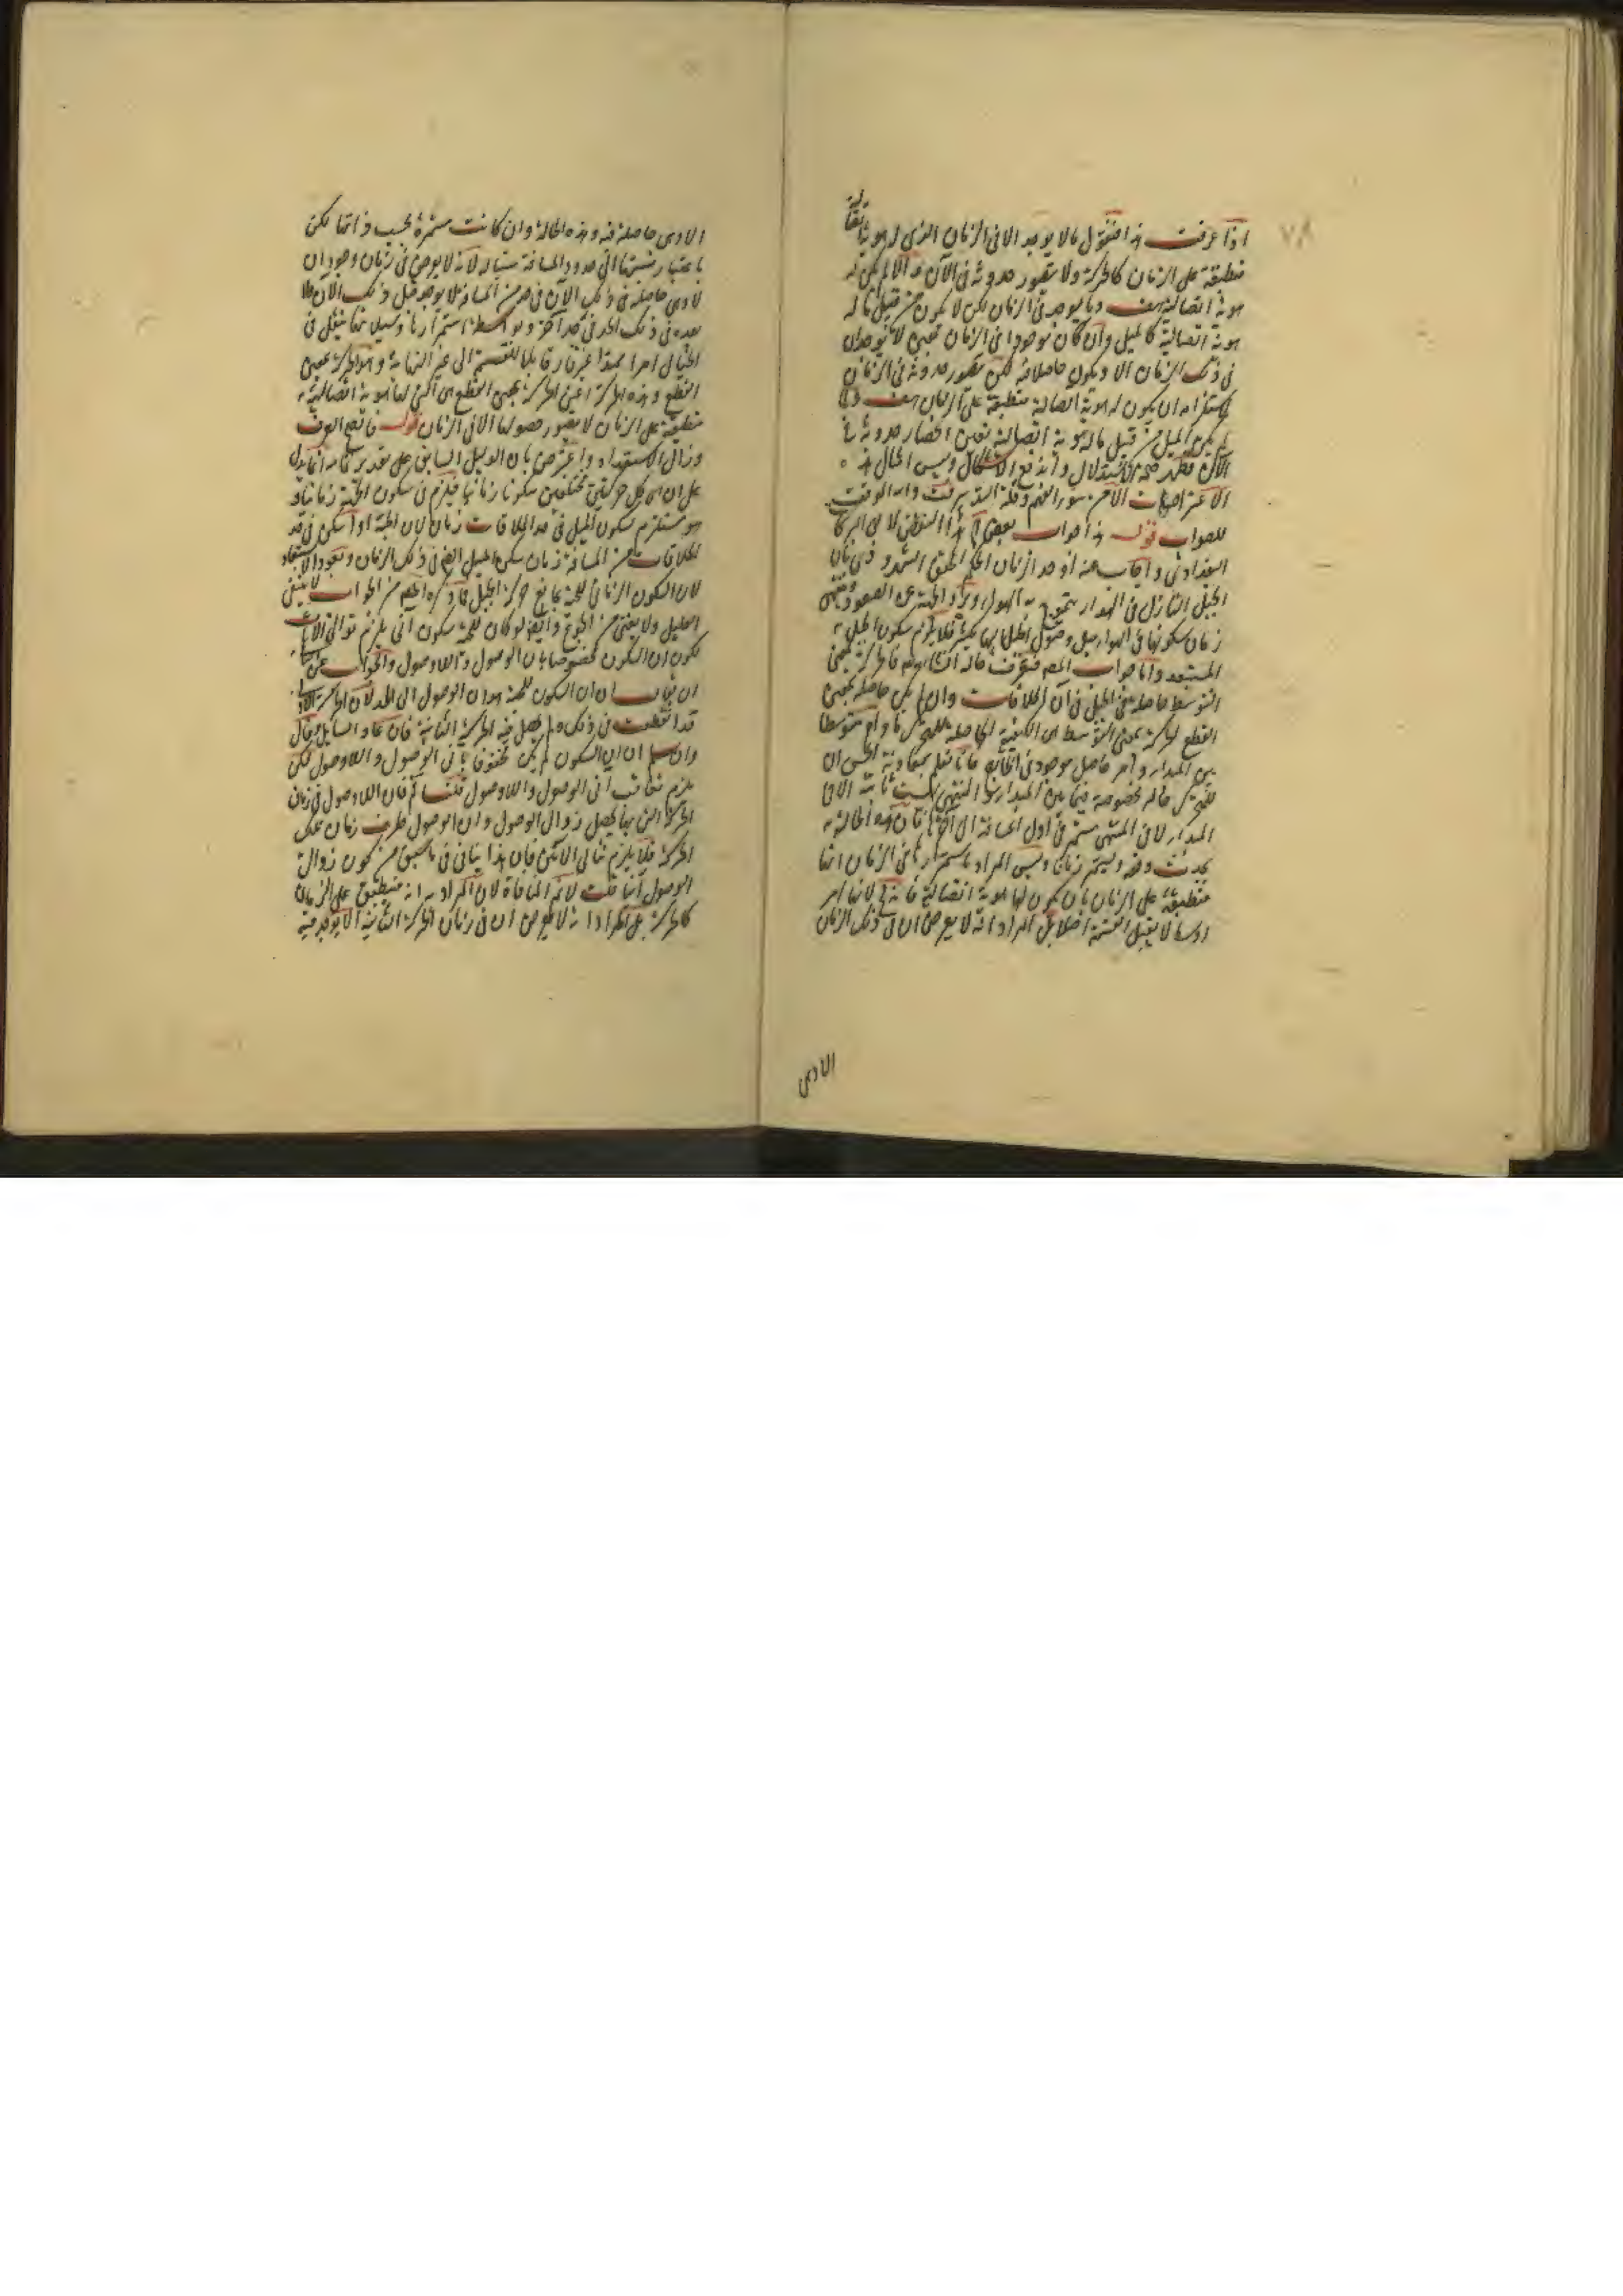 ٧٨
اذا عرفت هذا فنقول ما لا يوجد الا فى الزمان الذى له هوية
منطبقة على الزمان كالحركة ولا يتصور حدوثه فى الآن والا لم يكن له
هوية اتصالية هف وما يوجد فى الزمان لكن لا يكون من قبيل ما له
هوية اتصالية كالميل وان كان موجودا فى الزمان بمعنى لا يوجد ان
فى ذلك الزمان الا ويكون حاصلا فيه لكن يتصور حدوثه فى الزمان
لاستلزامه ان يكون له هوية اتصالية منطبقة على الزمان هف
لم يكن الميل من قبيل ما له هوية اتصالية تعين انحصار حدوثه فى
الآن فظهر صحة الاستدلال واندفع الاشكال وليس امثال هذه
الاعتراضات الا من سوء الفهم وقلة التدبر والله الموفق
للصواب قوله هذا جواب
البغدادى واجاب عنه اوحد الزمان
الجبل النازل فى الهواء
زمان سكونها فى الهواء قبل وصول الجبل اليها فلا يلزم سكون الجبل
المستبعد واما جواب المص
التوسط حاصلة فى الجبل فى آن الملاقات وان لم يكن حاصلة بمعنى
القطع الحركة بمعنى التوسط هى الكيفية الحاصلة للمتحرك ما دام متوسطا
بين المبدا وامر حاصل موجود فى الخارج فانا نعلم بمعاونة الحس ان
للمتحرك حالة مخصوصة فيما بين المبدا والمنتهى ليست ثابتة لا فى
المبدا ولا فى المنتهى مستمر فى اول المسافة الى آخرها فان هذه الحالة
يحدث دفعة ويستمر زمانا وليس المراد باستمرارها فى الزمان انها
منطبقة على الزمان بان يكون لها هوية اتصالية فانه لانها امر
لا يقبل القسمة اصلا بل المراد انه لا يعرض ان فى ذلك الزمان
الا وهى
الا وهى حاصلة فيه وهذه الحالة وان كانت مستمرة بحسب ذاتها لكن
باعتبار نسبتها الى حدود المسافة سيالة لانه لا يعرض فى زمان وجود ان
الا وهى حاصلة فى ذلك الآن فى حد من المسافة لا يوجد قبل ذلك الآن ولا
بعده فى ذلك الحد فى حد آخر وبواسطة استمرارها وسيلانها يفعل فى
الخيال امرا ممتدا غير قار قابلا للقسمة الى غير النهاية وهو الحركة بمعنى
القطع وهذه الحركة اعنى الحركة بمعنى القطع هى التى لها هوية اتصالية
منطبقة على الزمان لا يتصور حصولها الا فى الزمان قوله فاتضح الفرق
وزال الاستبعاد واعترض بان الدليل السابق على تقدير تمامه انما يدل
على ان بين كل حركتين مختلفتين سكونا زمانيا فيلزم فى سكون الحبة زمانا و
هو مستلزم سكون الجبل فى حد الملاقات زمانا لان الحبة اذا سكن فى حد
الملاقات من المسافة زمان سكن الجبل ايضا فى ذلك الزمان ويعود الاستبعاد
لان السكون الزمانى للحبة مع حركة الجبل فما ذكره المص من الجواب لا يشفى
العليل ولا يغنى من الجوع وايضا لو كان للحبة سكون آنى يلزم توالى الآنات
لكون ان السكون محفوفا بان الوصول وآن اللاوصول والجواب عن
ان يقال ان ان السكون للحبة هو ان الوصول الى الحد لان الحركة الاولى
قد انقطعت فى ذلك ولم يحصل فيه الحركة الثانية فان عاد السائل وقال
وان سلم ان ان السكون لم يكن محفوفا بانى الوصول واللاوصول لكن
يلزم تعاقب آنى الوصول واللاوصول قلنا لم فان اللاوصول فى زمان
الحركة التى بها يحصل زوال الوصول وان الوصول طرف زمان تلك
الحركة فلا يلزم تتالى الآنين فان هذا ينافى ما سبق من كون زوال
الوصول آنيا قلت لا نم المنافاة لان المراد انه منطبق على الزمان
كالحركة بل المراد انه لا يعرض ان فى زمان الحركة الثانية الا يوجد فيه